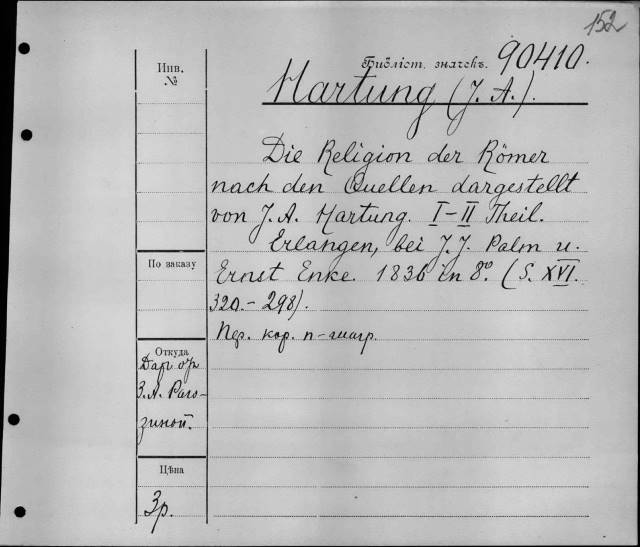 152
Инв.
№
Библіот. значекъ. 90410.
Hartung (J. A.).
Die Religion der Römer
nach den Quellen dargestellt
von J. A. Hartung. I-II Theil.
Erlangen, bei J. J. Palm u.
Ernst Enke. 1836 in 8º. (S. XVI.
320. - 298).
Пер. кор. п-
По заказу
Откуда
Даръ отъ
З. А. Раго-
зиной.
Цѣна
3 р.